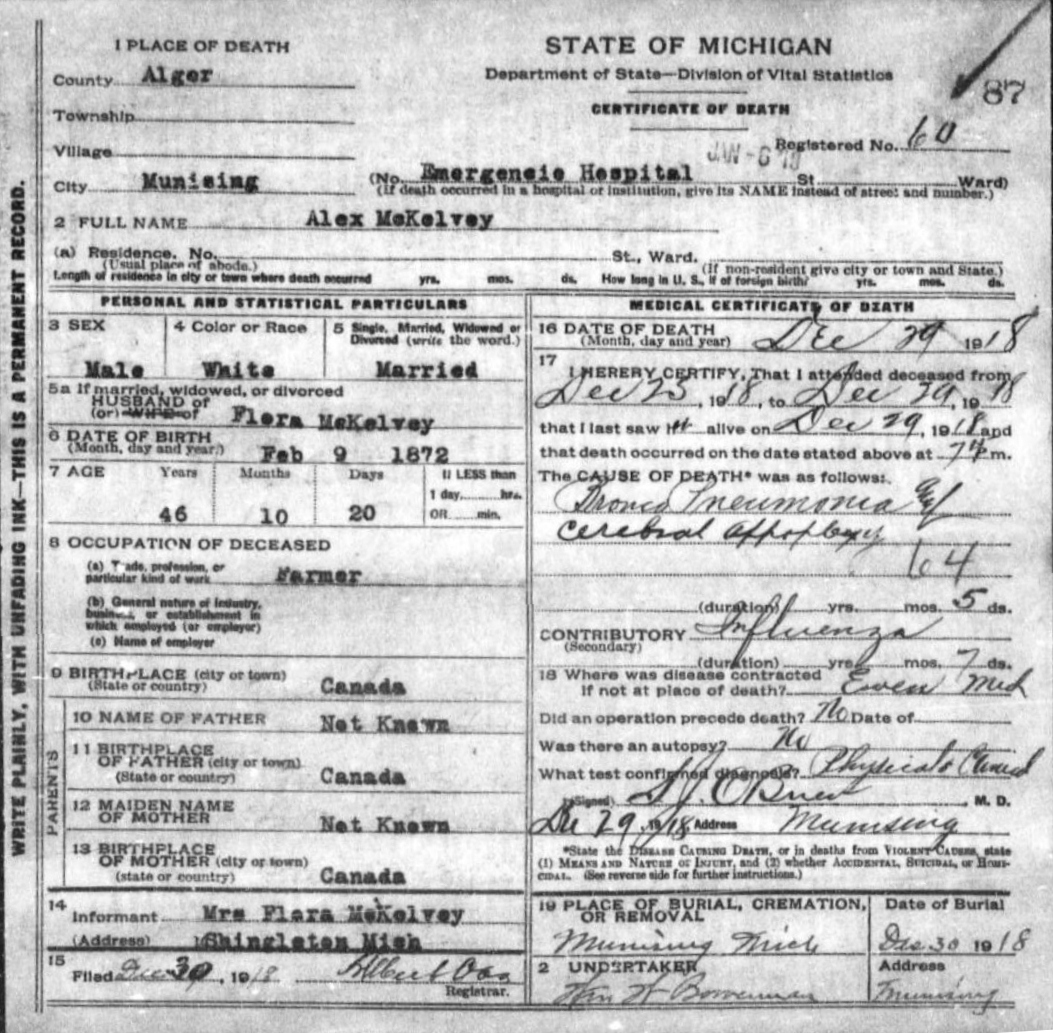 WRITE PLAINLY, WITH UNFADING INK—THIS IS A PERMANENT RECORD.
1 PLACE OF DEATH
County Alger
Township
Village
City Munising
STATE OF MICHIGAN
Department of State—Division of Vital Statistics
CERTIFICATE OF DEATH
87
Registered No. 60
JAN -6 19
(No. Emergencie Hospital St Ward)
(If death occurred in a hospital or institution, give its NAME instead of street and number.)
2 FULL NAME Alex McKelvey
(a) Residence. No. St., Ward.
(Usual place of abode.) (If non-resident give city or town and State.)
Length of residence in city or town where death occurred yrs. mos. ds. How long in U. S., if of foreign birth? yrs. mos. ds.
PERSONAL AND STATISTICAL PARTICULARS
3 SEX 4 Color or Race 5 Single, Married, Widowed or
Divorced (write the word.)
Male White Married
5a If married, widowed, or divorced
HUSBAND of
(or) WIFE of Flora McKelvey
6 DATE OF BIRTH
(Month, day and year.) Feb 9 1872
7 AGE Years Months Days If LESS than
1 day, hrs.
46 10 20 OR min.
8 OCCUPATION OF DECEASED
(a) Trade, profession, or
particular kind of work Farmer
(b) General nature of Industry,
business, or establishment in
which employed (or employer)
(c) Name of employer
9 BIRTHPLACE (city or town)
(State or country) Canada
PARENTS
10 NAME OF FATHER Not Known
11 BIRTHPLACE
OF FATHER (city or town)
(State or country) Canada
12 MAIDEN NAME
OF MOTHER Not Known
13 BIRTHPLACE
OF MOTHER (city or town)
(state or country) Canada
14
Informant Mrs Flora McKelvey
(Address) Shingleton Mich
15
Filed Dec 30, 1918 Albert
Registrar.
MEDICAL CERTIFICATE OF DEATH
16 DATE OF DEATH
(Month, day and year) Dec 29 1918
17
I HEREBY CERTIFY, That I attended deceased from
Dec 25, 1918, to Dec 29, 1918
that I last saw alive on Dec 29, 1918 and
that death occurred on the date stated above at 7 m.
The CAUSE OF DEATH* was as follows:
Bronco Pneumonia
Cerebral Appoplexy
64
(duration) yrs. mos. 5 ds.
CONTRIBUTORY Influenza
(Secondary)
(duration) yrs. mos. 7 ds.
18 Where was disease contracted
if not at place of death? Ewen Mich
Did an operation precede death? No Date of
Was there an autopsy? No
What test confirmed diagnosis? Physical & Clinical
(Signed) O'Brien, M. D.
Dec 29, 1918, Address Munising
*State the DISEASE CAUSING DEATH, or in deaths from VIOLENT CAUSES, state
(1) MEANS AND NATURE OF INJURY, and (2) whether ACCIDENTAL, SUICIDAL, or HOMI-
CIDAL. (See reverse side for further instructions.)
19 PLACE OF BURIAL, CREMATION,
OR REMOVAL
Munising Mich
Date of Burial
Dec 30 1918
2 UNDERTAKER
Wm H Bowerman
Address
Munising